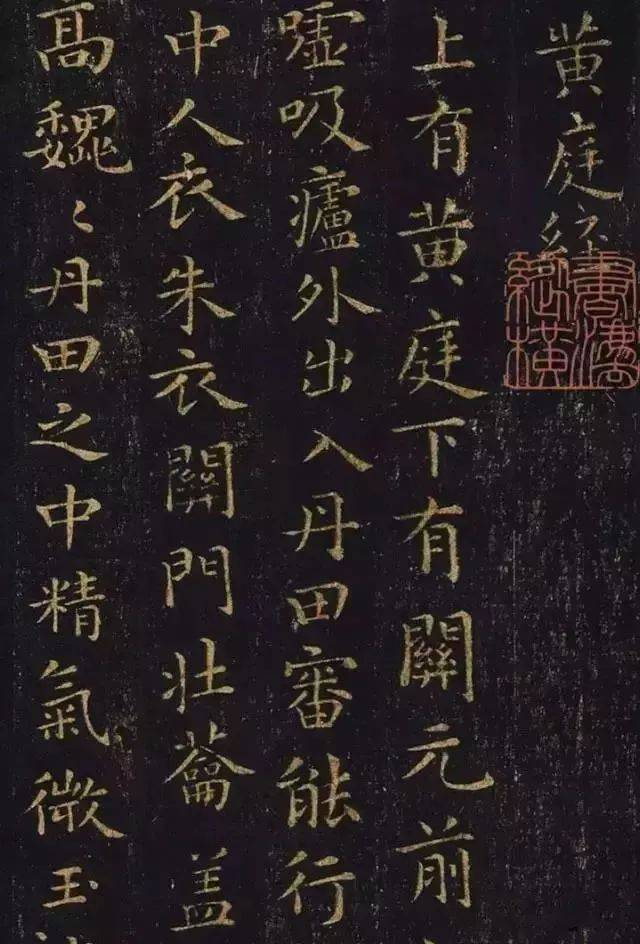 黄庭經
上有黄庭下有關元前
噓吸廬外出入丹田審能行
中人衣朱衣關門壯蘥盖
高魏〻丹田之中精氣微玉